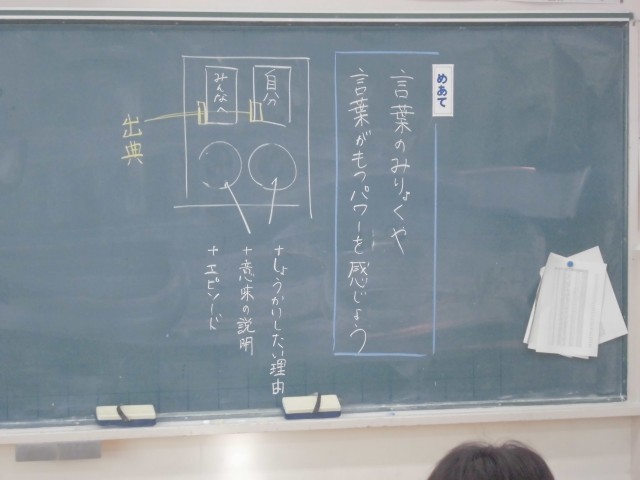 めあて
言葉のみりょくや
言葉がもつパワーを感じよう
自分
みんなへ
出典
+しょうかいしたい理由
+意味の説明
+エピソード